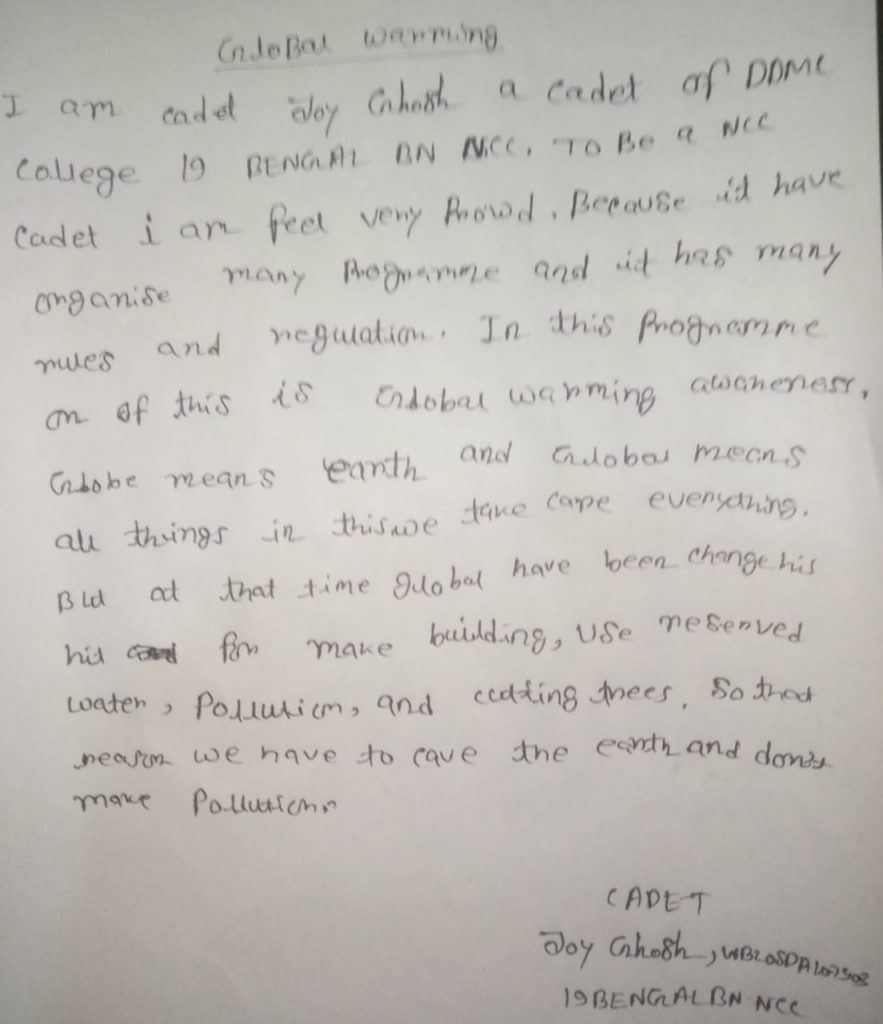 Global Warming
I am cadet Joy Ghosh a cadet of DDMC
College 19 BENGAL BN NCC. To Be a NCC
Cadet i am feel very Prowd. Because it have
organise many Programme and it has many
rules and regulation. In this Programme
on of this is Global warming awareness.
Globe means earth and Global means
all things in this we take care everything.
But at that time global have been change his
his for make building, use reserved
water, Pollution, and cutting trees. So that
reason we have to cave the earth and don't
make Pollution.
CADET
Joy Ghosh,
19 BENGAL BN NCC